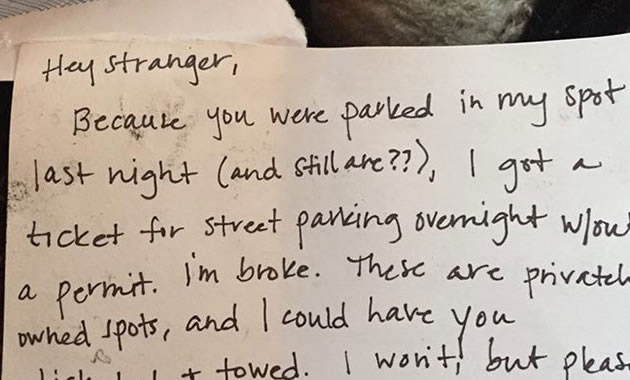 Hey stranger,
Because you were parked in my spot
last night (and still are??), I got a
ticket for street parking overnight w/ou
a permit. I'm broke. These are privatel
owned spots, and I could have you
towed. I won't, but pleas